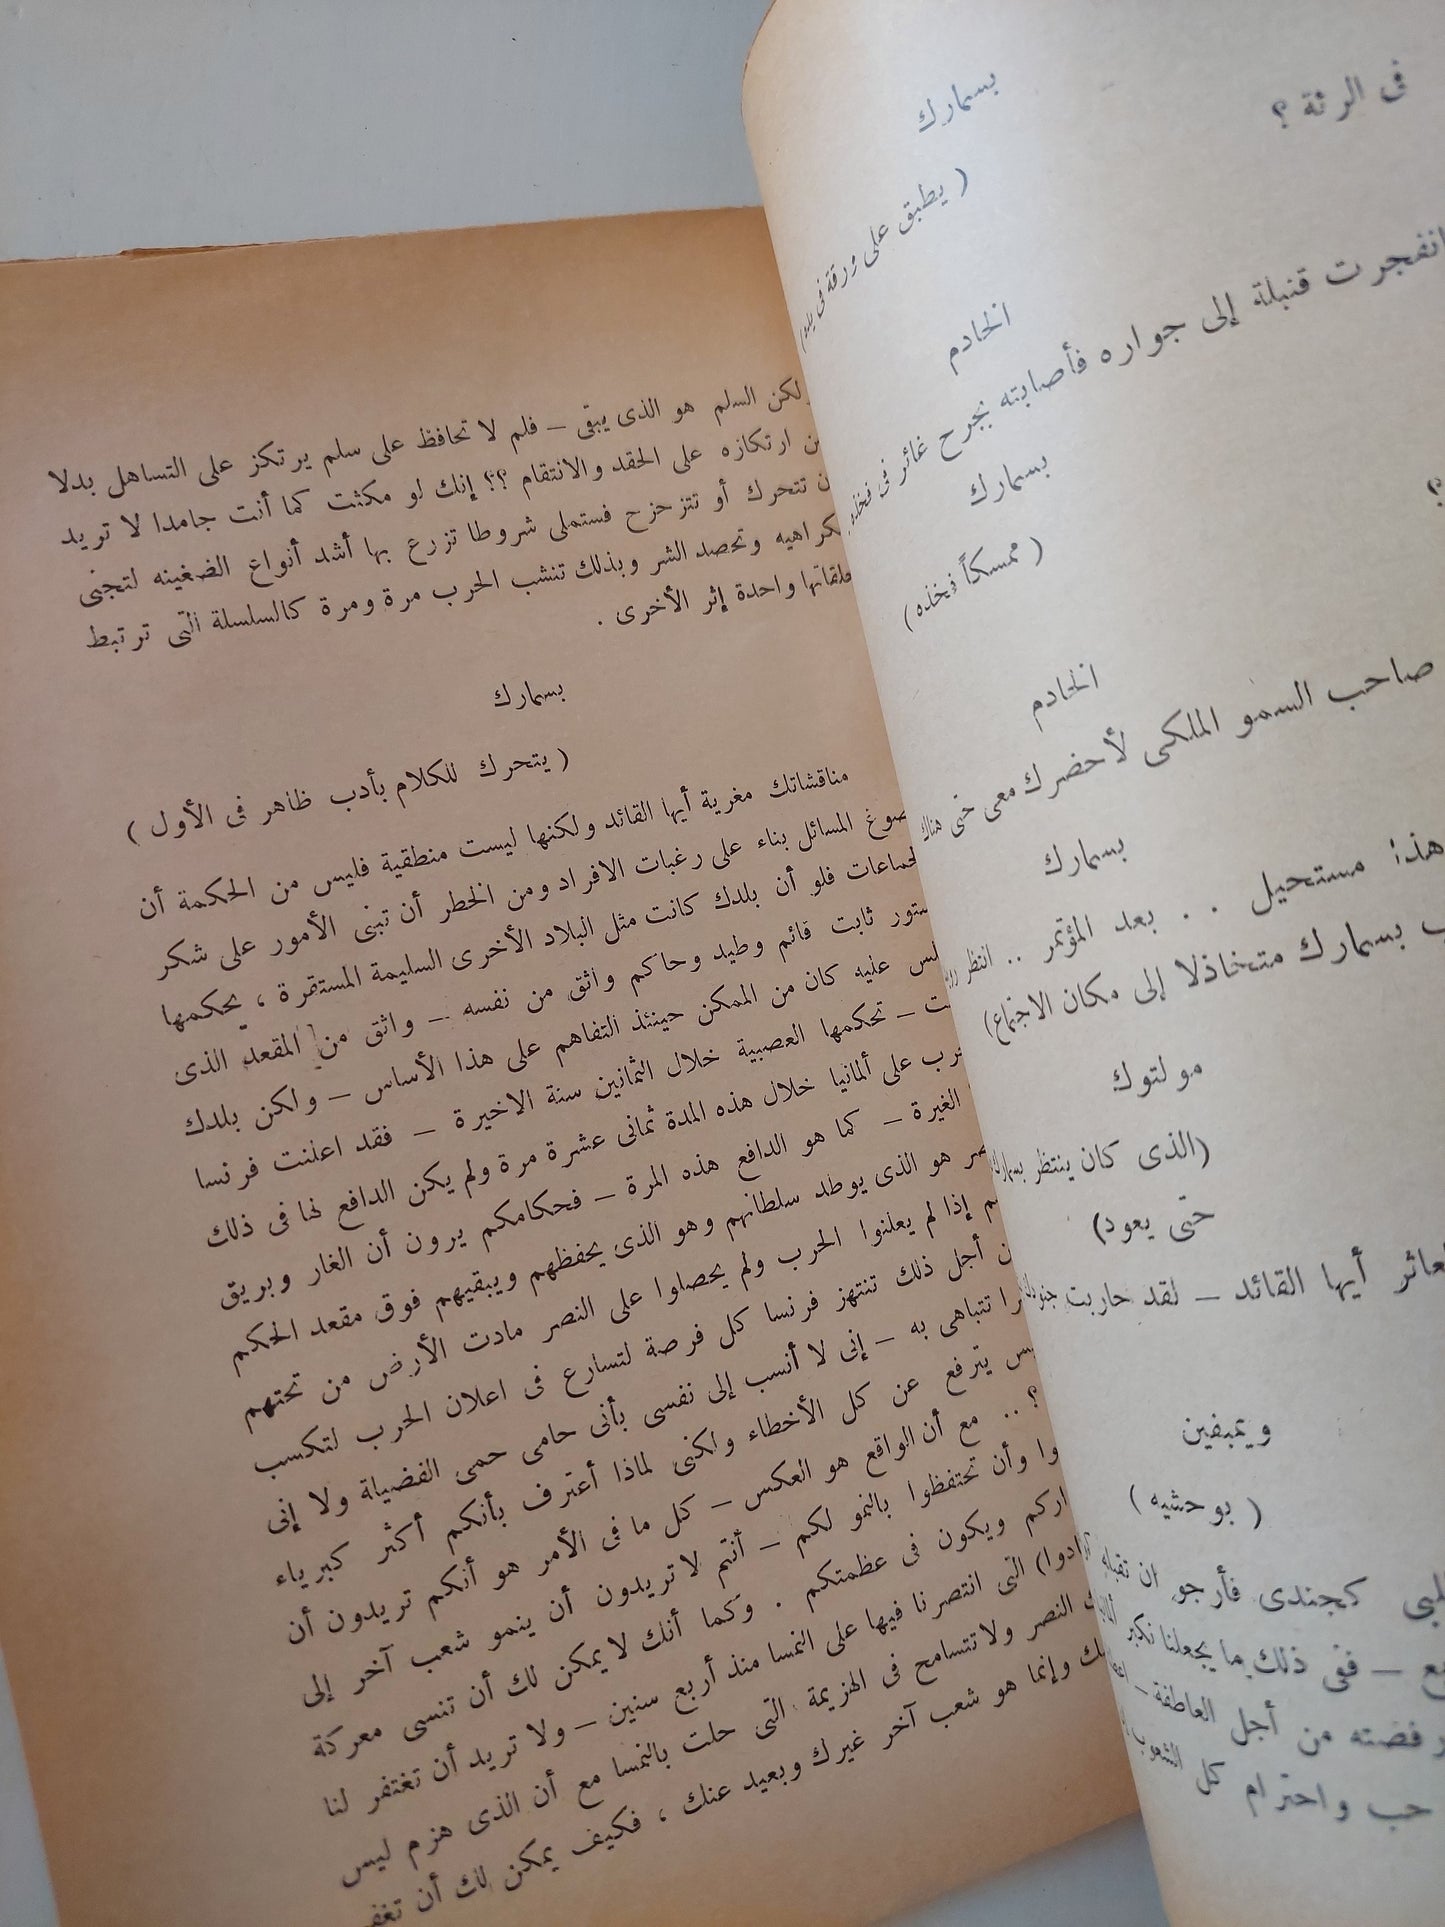 فى الرئة ؟
بسمارك
( يطبق على ورقة فى يده )
الخادم
انفجرت قنبلة إلى جواره فأصابته بجرح غائر فى فخذه
بسمارك
( ممسكاً فخذه )
الخادم
صاحب السمو الملكى لأحضرك معى حتى هناك
بسمارك
هذا مستحيل . . بعد المؤتمر . . انتظر
بسمارك متخاذلا إلى مكان الاجتماع )
مولتوك
( الذى كان ينتظر بسمارك
حتى يعود )
أيها القائد – لقد حاربت
ويمبفين
( بوحشيه )
كجندى فأرجو ان تقبله
– ففى ذلك ما يجعلنا نكبر
رفضته من أجل العاطفة –
حب واحترام كل الشعوب
ولكن السلم هو الذى يبقى – فلم لا تحافظ على سلم يرتكز على التساهل بدلا
من ارتكازه على الحقد والانتقام ؟؟ إنك لو مكثت كما أنت جامدا لا تريد
أن تتحرك أو تتزحزح فستملى شروطا تزرع بها أشد أنواع الضغينه لتجنى
الكراهيه وتحصد الشر وبذلك تنشب الحرب مرة ومرة كالسلسلة التى ترتبط
حلقاتها واحدة إثر الأخرى .
بسمارك
( يتحرك للكلام بأدب ظاهر فى الأول )
مناقشاتك مغرية أيها القائد ولكنها ليست منطقية فليس من الحكمة أن
نصوغ المسائل بناء على رغبات الافراد ومن الخطر أن تبنى الأمور على شكر
الجماعات فلو أن بلدك كانت مثل البلاد الأخرى السليمة المستقرة ، يحكمها
دستور ثابت قائم وطيد وحاكم واثق من نفسه – واثق من المقعد الذى
يجلس عليه كان من الممكن حينئذ التفاهم على هذا الأساس – ولكن بلدك
– تحكمها العصبية خلال الثمانين سنة الاخيرة – فقد اعلنت فرنسا
الحرب على ألمانيا خلال هذه المدة ثمانى عشرة مرة ولم يكن الدافع لها فى ذلك
الغيرة – كما هو الدافع هذه المرة – فحكامكم يرون أن الغار وبريق
النصر هو الذى يوطد سلطانهم وهو الذى يحفظهم ويبقيهم فوق مقعد الحكم
إذا لم يعلنوا الحرب ولم يحصلوا على النصر مادت الأرض من تحتهم
من أجل ذلك تنتهز فرنسا كل فرصة لتسارع فى اعلان الحرب لتكسب
تتباهى به – إنى لا أنسب إلى نفسى بأنى حامى حمى الفضيلة ولا إنى
يترفع عن كل الأخطاء ولكنى لماذا أعترف بأنكم أكثر كبرياء
؟ . . مع أن الواقع هو العكس – كل ما فى الأمر هو أنكم تريدون أن
وأن تحتفظوا بالنمو لكم – أنتم لا تريدون أن ينمو شعب آخر إلى
ويكون فى عظمتكم . وكما أنك لا يمكن لك أن تنسى معركة
التى انتصرنا فيها على النمسا منذ أربع سنين – ولا تريد أن تغتفر لنا
النصر ولا تتسامح فى الهزيمة التى حلت بالنمسا مع أن الذى هزم ليس
وإنما هو شعب آخر غيرك وبعيد عنك ، فكيف يمكن لك أن